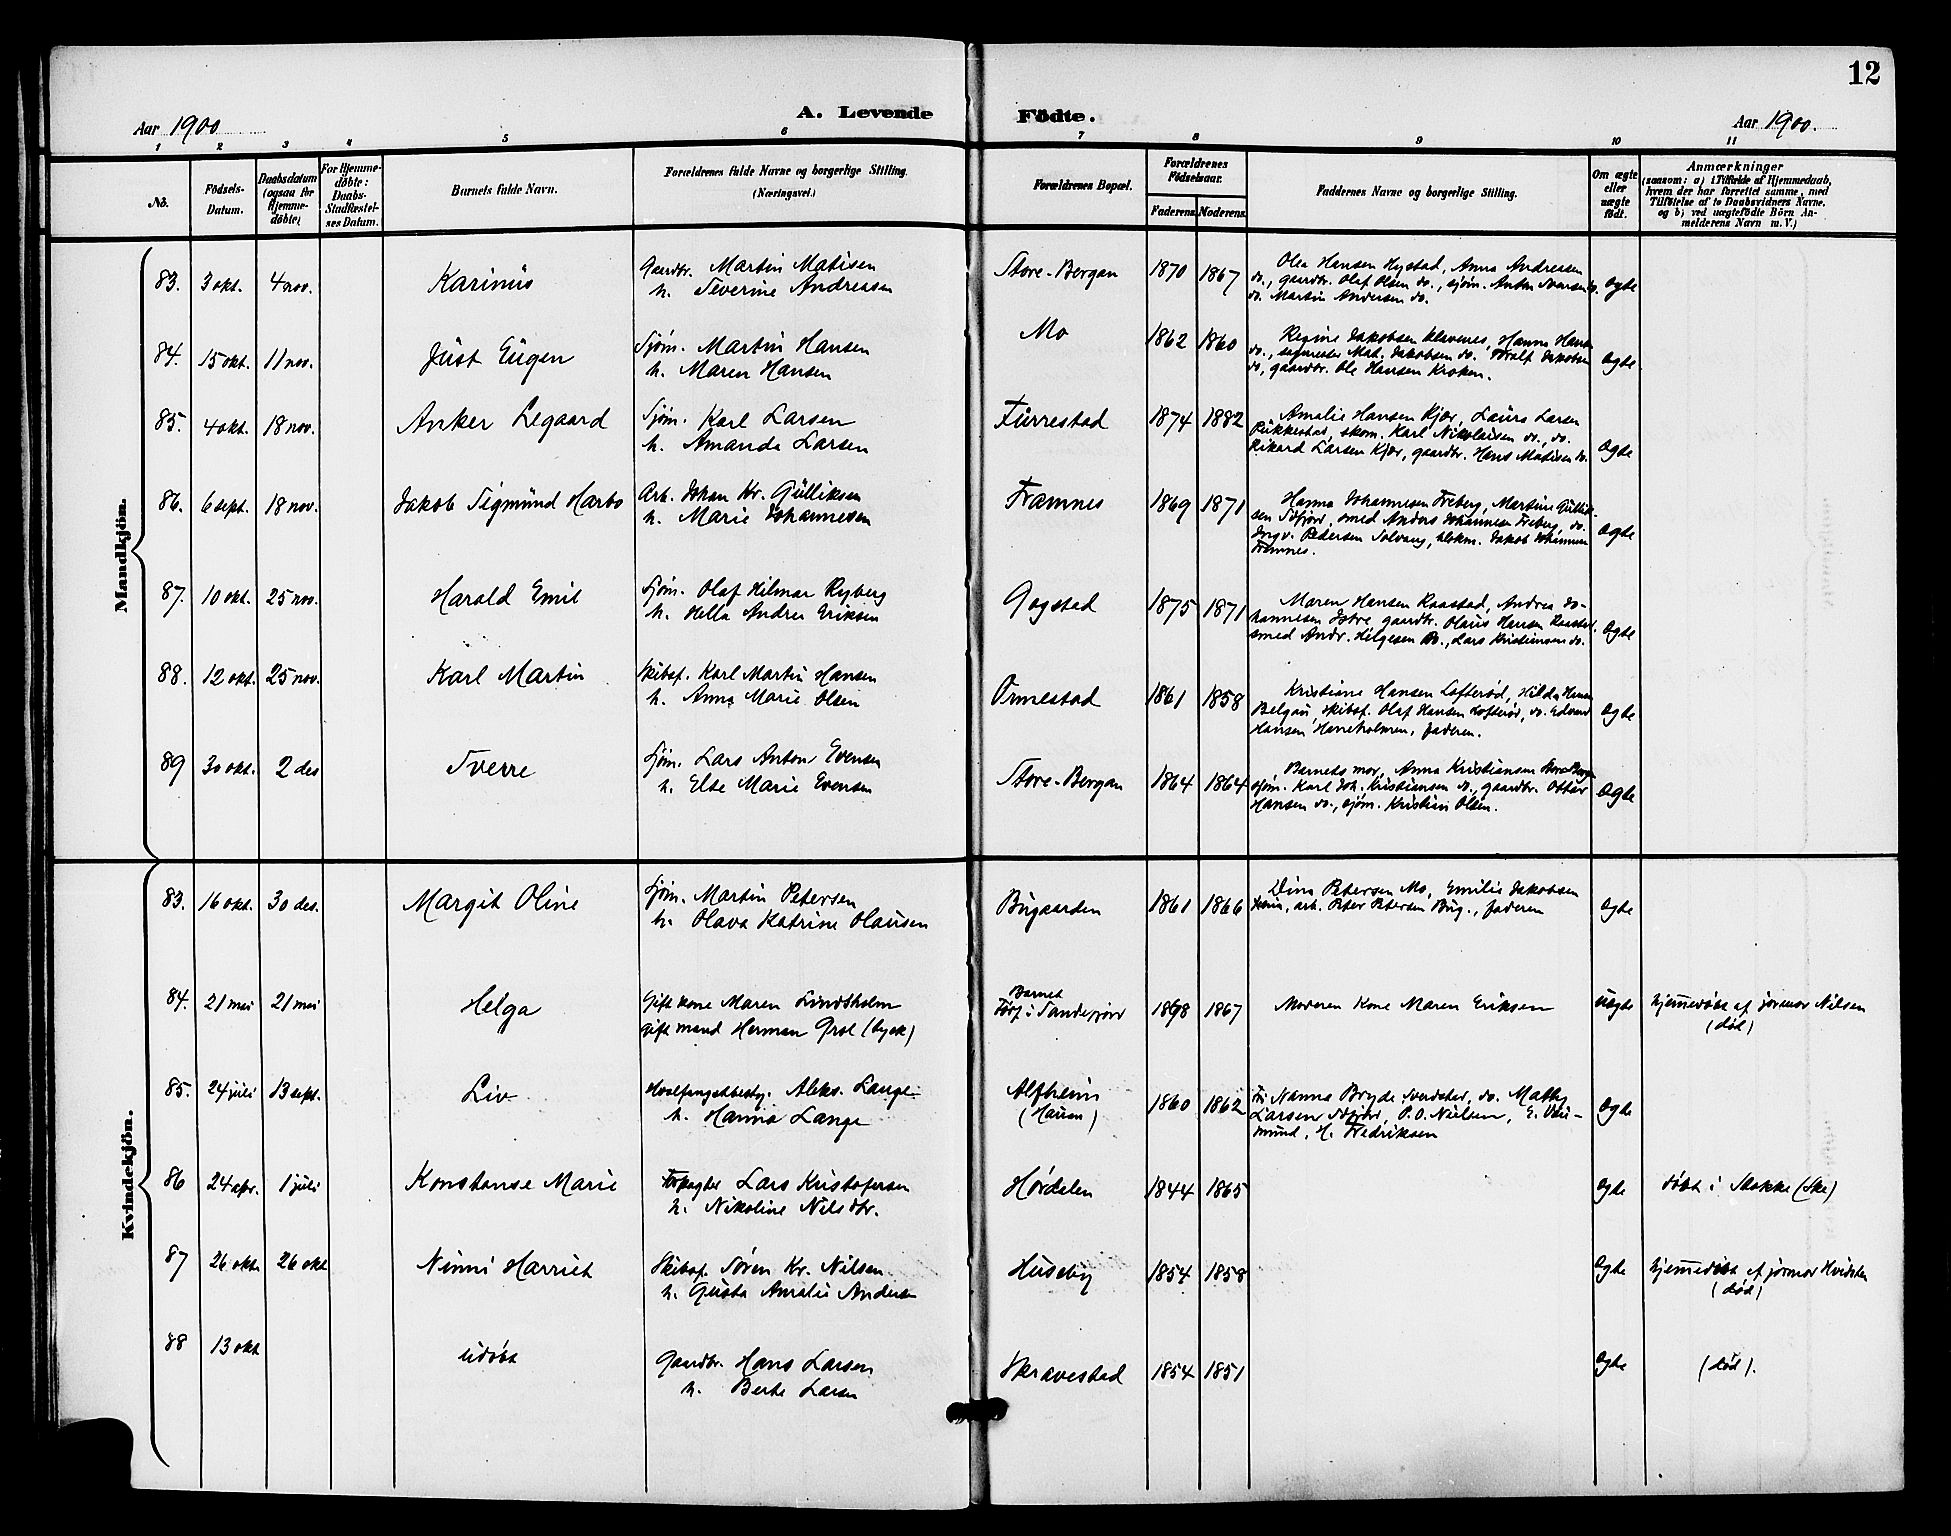 12
A. Levende Födte.
Aar 1900
Aar 1900.
1 2 3 4 5 6 7 8 9 10 11
No.
Födsels-Datum.
Daabsdatum (ogsaa for Hjemmedöbte)
For Hjemmedöbte: Daabs-Stadfæstelses Datum.
Barnets fulde Navn.
Forældrenes fulde Navne og borgerlige Stilling. (Næringsvei.)
Forældrenes Bopæl.
Forældrenes Födselsaar.
Faderens. Moderens.
Faddernes Navne og borgerlige Stilling.
Om ægte eller uægte födt.
Anmærkninger
(saasom: a) i Tilfælde af Hjemmedaab,
hvem der har forrettet samme, med
Tilføielse af to Daabsvidners Navne,
og b) ved uægtefödte Börn An-
melderens Navn m. V.)
Mandkjön.
83. 3 okt. 4 nov. Karinus
Gaardbr. Martin Matisen
h. Severine Andreasen
Store-Bergan 1870 1867
Olea Hansen Hystad, Anna Andreasen
do., gaardbr. Olaf Olsen do., sjøm. Anton Svensen do.
do. Martin Andersen do.
ægte
84. 15 okt. 11 nov. Just Eugen
Sjøm. Martin Hansen
h. Maren Hansen
Mo 1862 1860
Regine Jakobsen Klavenes, Hanna Hansen
do., Mat. Jakobsen do. Jakobsen
do, gaardbr. Ole Hansen Kroken.
ægte
85. 4 okt. 18 nov. Anker Legaard
Sjøm. Karl Larsen
h. Amanda Larsen
Furrestad 1874 1882
Amalie Hansen Kjær, Laura Larsen
Pukkestad, skom. Karl Nikolaisen do., do.
Rikard Larsen Kjær, gaardbr. Hans Matisen do.
ægte
86. 6 sept. 18 nov. Jakob Sigmund Harbo
Arb. Johan Kr. Gulliksen
h. Marie Johannesen
Framnes 1869 1871
Hanna Johannesen Freberg, Martine Gullik-
sen Sdfjord, smed Anders Johannesen Freberg, do.
Ingv. Petersen Solvang, blokm. Jakob Johannesen
Framnes.
ægte
87. 10 okt. 25 nov. Harald Emil
Sjøm. Olaf Hilmar Ryberg
h. Hella Andrea Eriksen
Gogstad 1875 1871
Maren Hansen Raastad, Andrea Jo-
hannesen Istre gaardbr. Olaus Hansen Raastad,
smed Andr. Helgesen Bo., Lars Kristiansen do.
ægte
88. 12 okt. 25 nov. Karl Martin
Skibsf. Karl Martin Hansen
h. Anna Marie Olsen
Ormestad 1861 1858
Kristiane Hansen Lofterød, Hilda Hansen
Belgau, skibsf. Olaf Hansen Lofterød, do. Edvard
Hansen Haneholmen, faderen.
ægte
89 30 okt. 2 des Sverre
Sjøm. Lars Anton Evensen
h. Else Marie Evensen
Store-Bergan 1864 1864
Barnets mor, Anna Kristiansen Store Bergan
sjøm. Karl Joh. Kristiansen do., gaardbr. Ottar
Hansen do., sjøm. Kristian Olsen.
ægte
Kvindekjön.
83. 16 okt. 30 des. Margit Oline
Sjøm. Martin Petersen
h. Olava Katrine Olausen
Bugaarden 1861 1866
Dina Petersen Mo, Emilie Jakobsen
arb. Peter Petersen Bug., faderen
ægte
84. 21 mai 21 mai Helga
Gift kone Maren Lindholm
gift mand Herman Grol (tysk)
Barnet
Født i Sandefjord 1868 1867
Moderen Kone Maren Eriksen
uægte
hjemmedøbt af jormor Nilsen
(død)
85. 24 juli 13 sept. Liv
Hvalfangstbesty. Aleks. Lange
h. Hanna Lange
Alfheim
(Hausen) 1860 1862
Fr. Nanna Bryde Sverdstad, do. Mathy
Larsen Sdfjord, P. O. Nielsen, E. Vei-
mund, H. Fredriksen
ægte
86 24 apr. 1 juli Konstanse Marie
Forpagter Lars Kristofersen
h. Nikoline Nilsdtr.
Hørdalen 1844 1865
ægte
døbt i Stokke (Ske)
87 26 okt. 26 okt Ninni Harriet
Skibsf. Søren Kr. Nilsen
h. Gusta Amalie Andersen
Huseby 1854 1858
ægte
hjemmedøbt af jormor Hvidsten
(død)
88 13 okt udøbt
Gaardbr. Hans Larsen
h. Berte Larsen
Skravestad 1854 1851
ægte
(død).